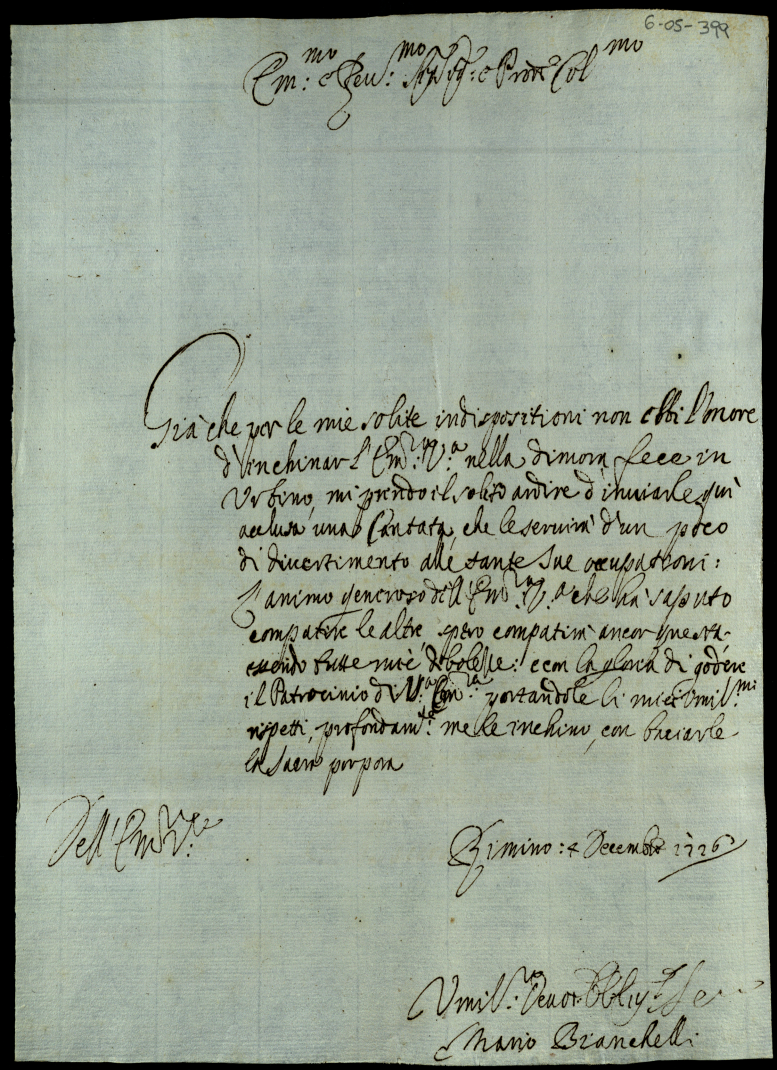 6-05-399
Em:mo e Rev:mo Sig: Sig:e e Prone Colmo
Già che per le mie solite indispositioni non ebbi l'onore
d'inchinar l'Em:za V:a nella dimora fece in
Urbino, mi prendo il solito ardire d'inviarle qui
acclusa una Cantata, che le servirà d'un poco
di divertimento alle tante Sue occupationi:
L'animo generoso dell'Em:za V:a che hà saputo
compatire le altre, spero compatirà ancor questa
essendo tutte mie debolesse: e con la gloria di godere
il Patrocinio di V:a Em:za portandole li miei Umil:mi
rispetti, profondam:te me le inchino, con baciarle
la Sacra porpora
Dell'Em:za V:a
Rimino: 4 Decembre 1726
Umil:mo Devot: Obblig:
Mario Bianchelli